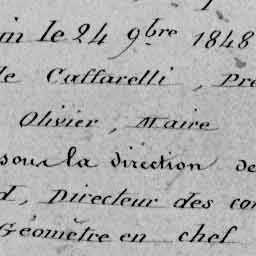 in le 24 9bre 1848
le Caffarelli, Pré
Olivier, Maire
sous la direction de
d, Directeur des con
Géomètre en chef